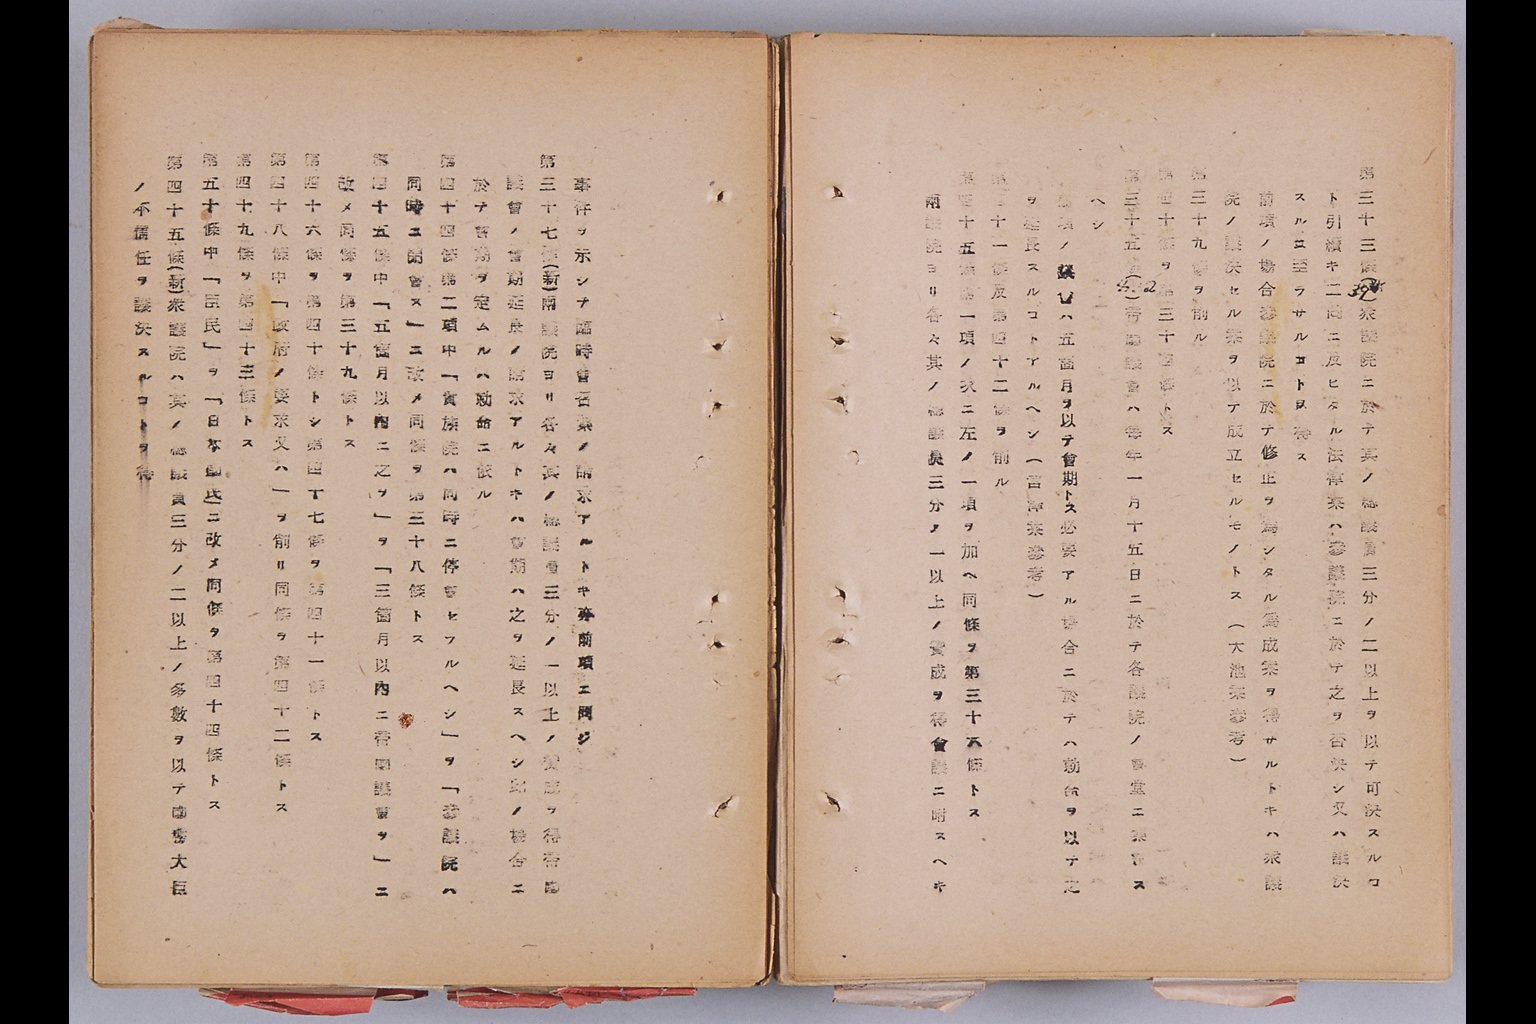 第三十三條(新)衆議院ニ於テ其ノ總議員三分ノ二以上ヲ以テ可決スルコ
ト引續キ二囘ニ及ヒタル法律案ハ參議院ニ於テ之ヲ否決シ又ハ議決
スルニ至ラサルコトヲ得ス
前項ノ場合參議院ニ於テ修正ヲ爲シタル爲成案ヲ得サルトキハ衆議
院ノ議決セル案ヲ以テ成立セルモノトス(大池案參考)
第三十九條ヲ削ル
第四十條ヲ第三十四條トス
第三十五條( )帝國議會ハ每年一月十五日ニ於テ各議院ノ會堂ニ集會ス
ヘシ
前項ノ議會ハ五箇月ヲ以テ會期トス必要アル場合ニ於テハ勅命ヲ以テ之
ヲ延長スルコトアルヘシ(
案參考)
第四十一條及第四十二條ヲ削ル
第四十五條第一項ノ次ニ左ノ一項ヲ加ヘ同條ヲ第三十六條トス
兩議院ヨリ各々其ノ總議員三分ノ一以上ノ贊成ヲ得會議ニ附スヘキ
事件ヲ示シテ臨時會召集ノ請求アルトキ亦前項ニ同ジ
第三十七條(新)兩議院ヨリ各々其ノ總議員三分ノ一以上ノ贊成ヲ得帝國
議會ノ會期延長ノ請求アルトキハ會期ハ之ヲ延長スヘシ此ノ場合ニ
於テ會期ヲ定ムルハ勅命ニ依ル
第四十四條第二項中「貴族院ハ同時ニ停會セラルヘシ」ヲ「參議院ハ
同時ニ閉會ス」ニ改メ同條ヲ第三十八條トス
第四十五條中「五箇月以內ニ之ヲ」ヲ「三箇月以內ニ帝國議會ヲ」ニ
改メ同條ヲ第三十九條トス
第四十六條ヲ第四十條トシ第四十七條ヲ第四十一條トス
第四十八條中「政府ノ要求又ハ」ヲ削リ同條ヲ第四十二條トス
第四十九條ヲ第四十三條トス
第五十條中「臣民」ヲ「日本國民」ニ改メ同條ヲ第四十四條トス
第四十五條(新)衆議院ハ其ノ總議員三分ノ二以上ノ多數ヲ以テ國務大臣
ノ不信任ヲ議決スルコトヲ得